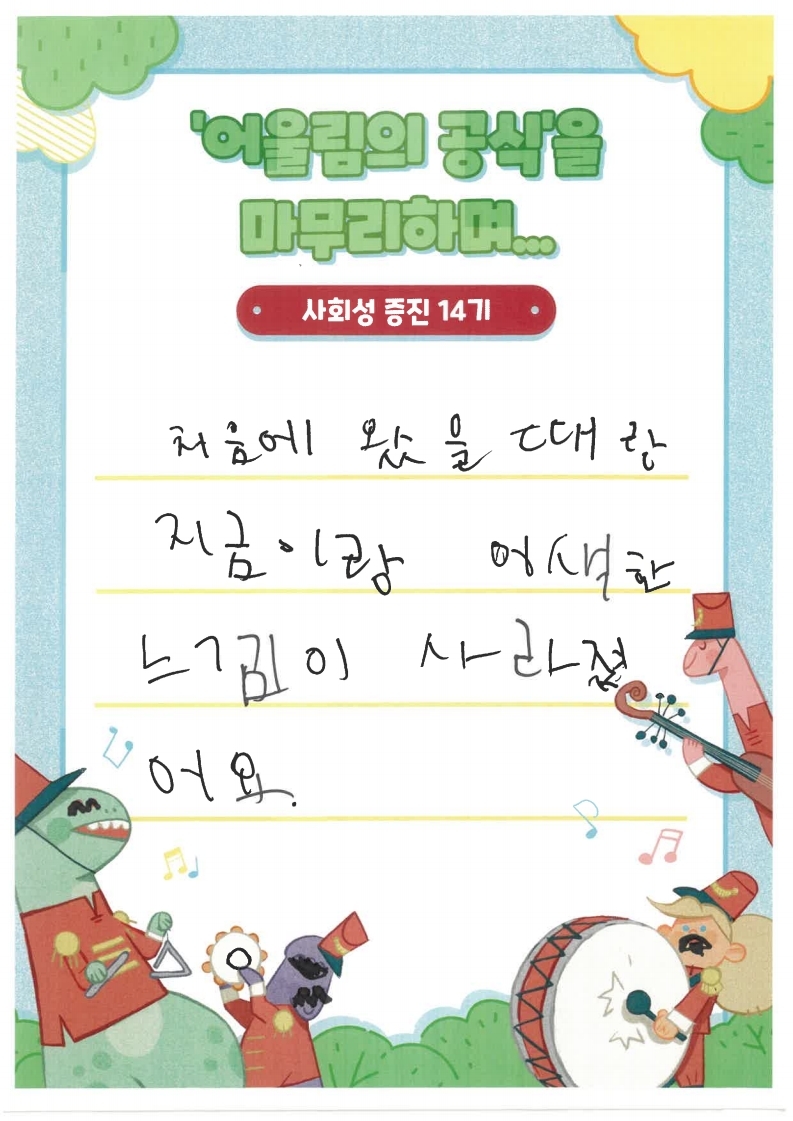 '어울림의 공식'을
마무리하며...
사회성 증진 14기
처음에 왔을 때랑
지금이랑 어색한
느낌이 사라졌
어요.